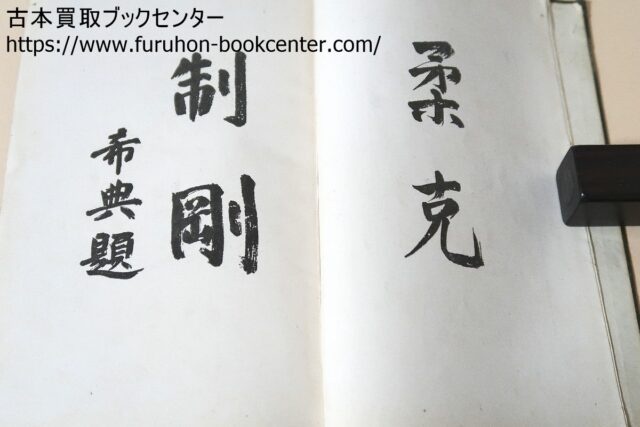 古本買取ブックセンター
https://www.furuhon-bookcenter.com/
柔克
制剛
希典題